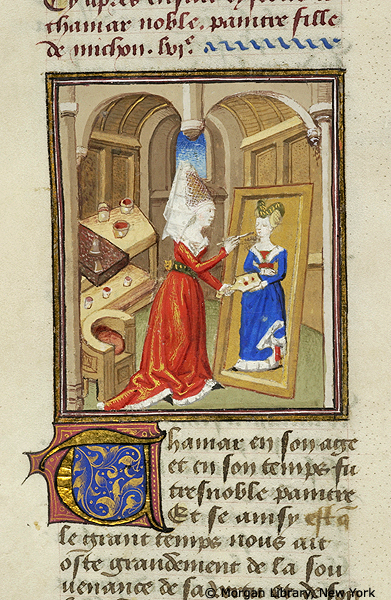 thamar noble . paintre fille
de michon . lvi.e
Thamar en son aage
et en son temps fu
tresnoble paintre
Et se ainsy est q̄
le grant temps nous ait
oste grandement de la sou
uenance de sa
© Morgan Library, New York